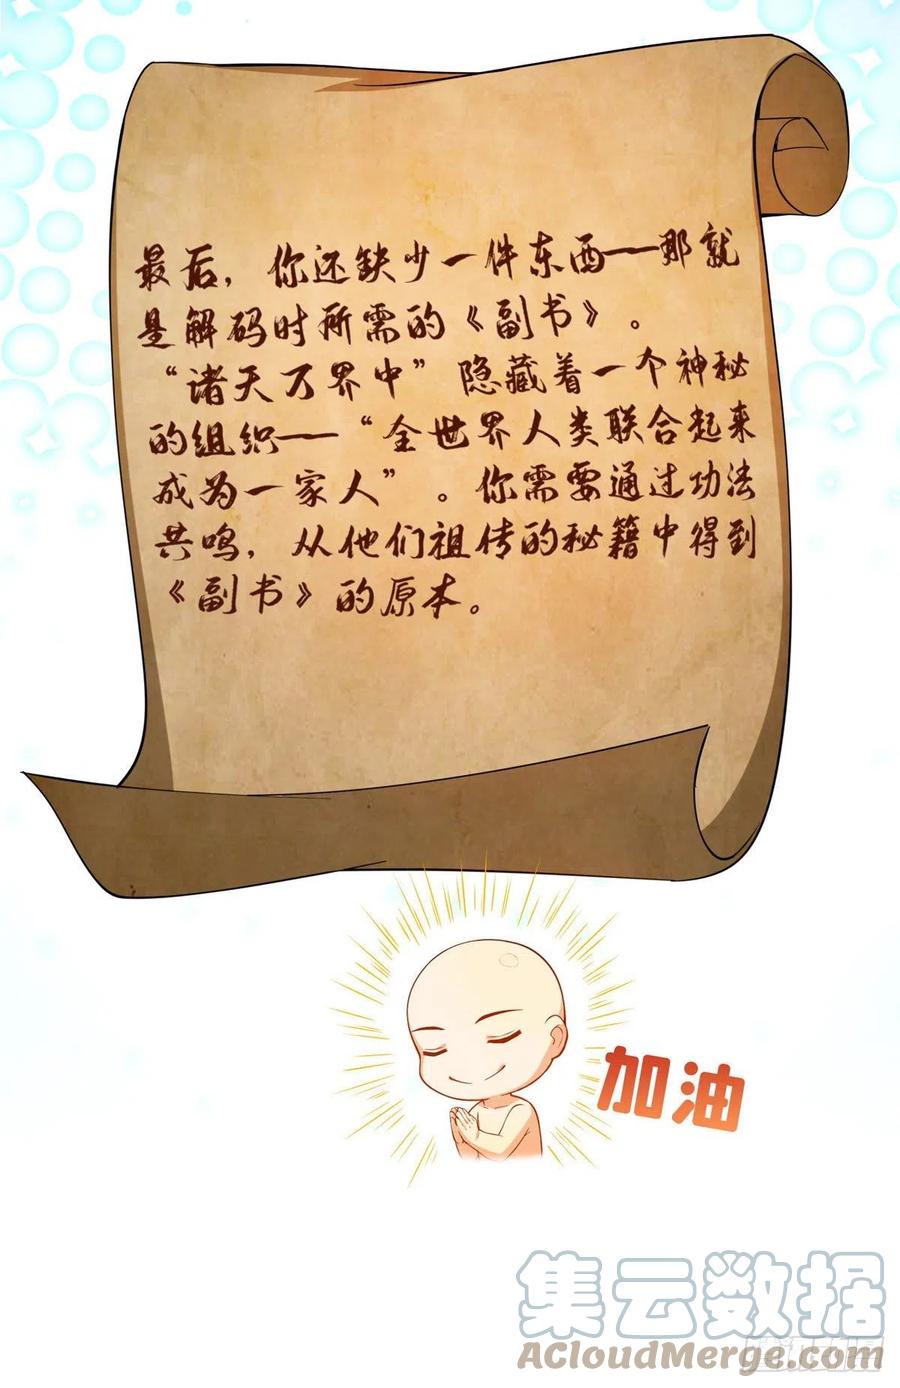 最后，你还缺少一件东西——那就
是解码时所需的《副书》。
“诸天万界中”隐藏着一个神秘
的组织——“全世界人类联合起来
成为一家人”。你需要通过功法
共鸣，从他们祖传的秘籍中得到
《副书》的原本。
加油
集云数据
ACloudMerge.com